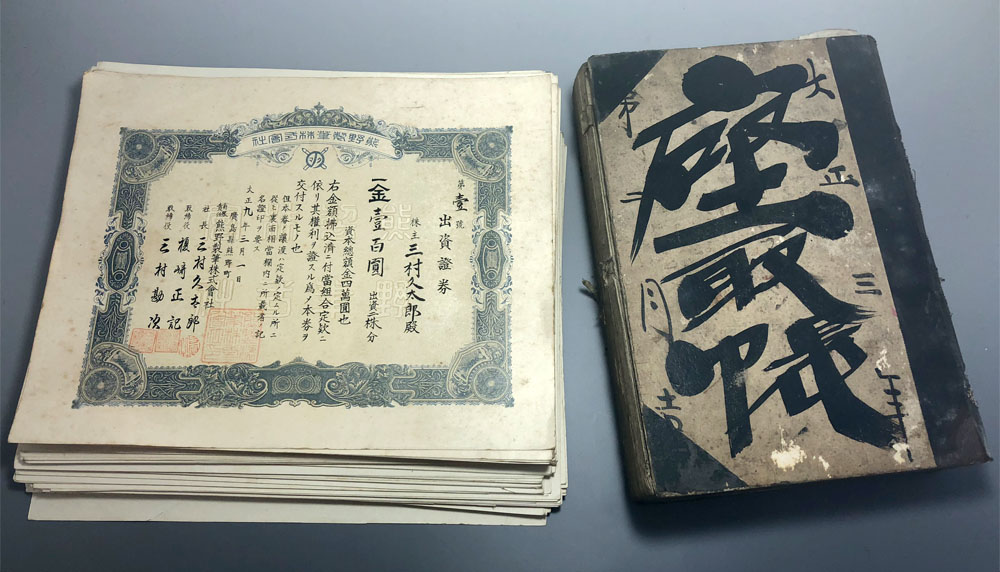 熊野製筆株式會社
第壹號 出資證券
株主 三村久太郎殿
一金壹百圓 出資二株分
資本總額金四萬圓也
右金額拂込濟ニ付當組合定款ニ
依リ其權利ヲ證スル爲メ本券ヲ
交付スルモノ也
但本券ノ讓渡ハ定款ノ定ムル所ニ
從ヒ裏面相當欄内ニ所載者ノ記
名證印ヲ要ス
大正九年三月一日
廣島縣熊野町
熊野製筆株式會社
社長 三村久太郎
取締役 槇崎正記
取締役 三村勘次
大正三年
座帳
月吉